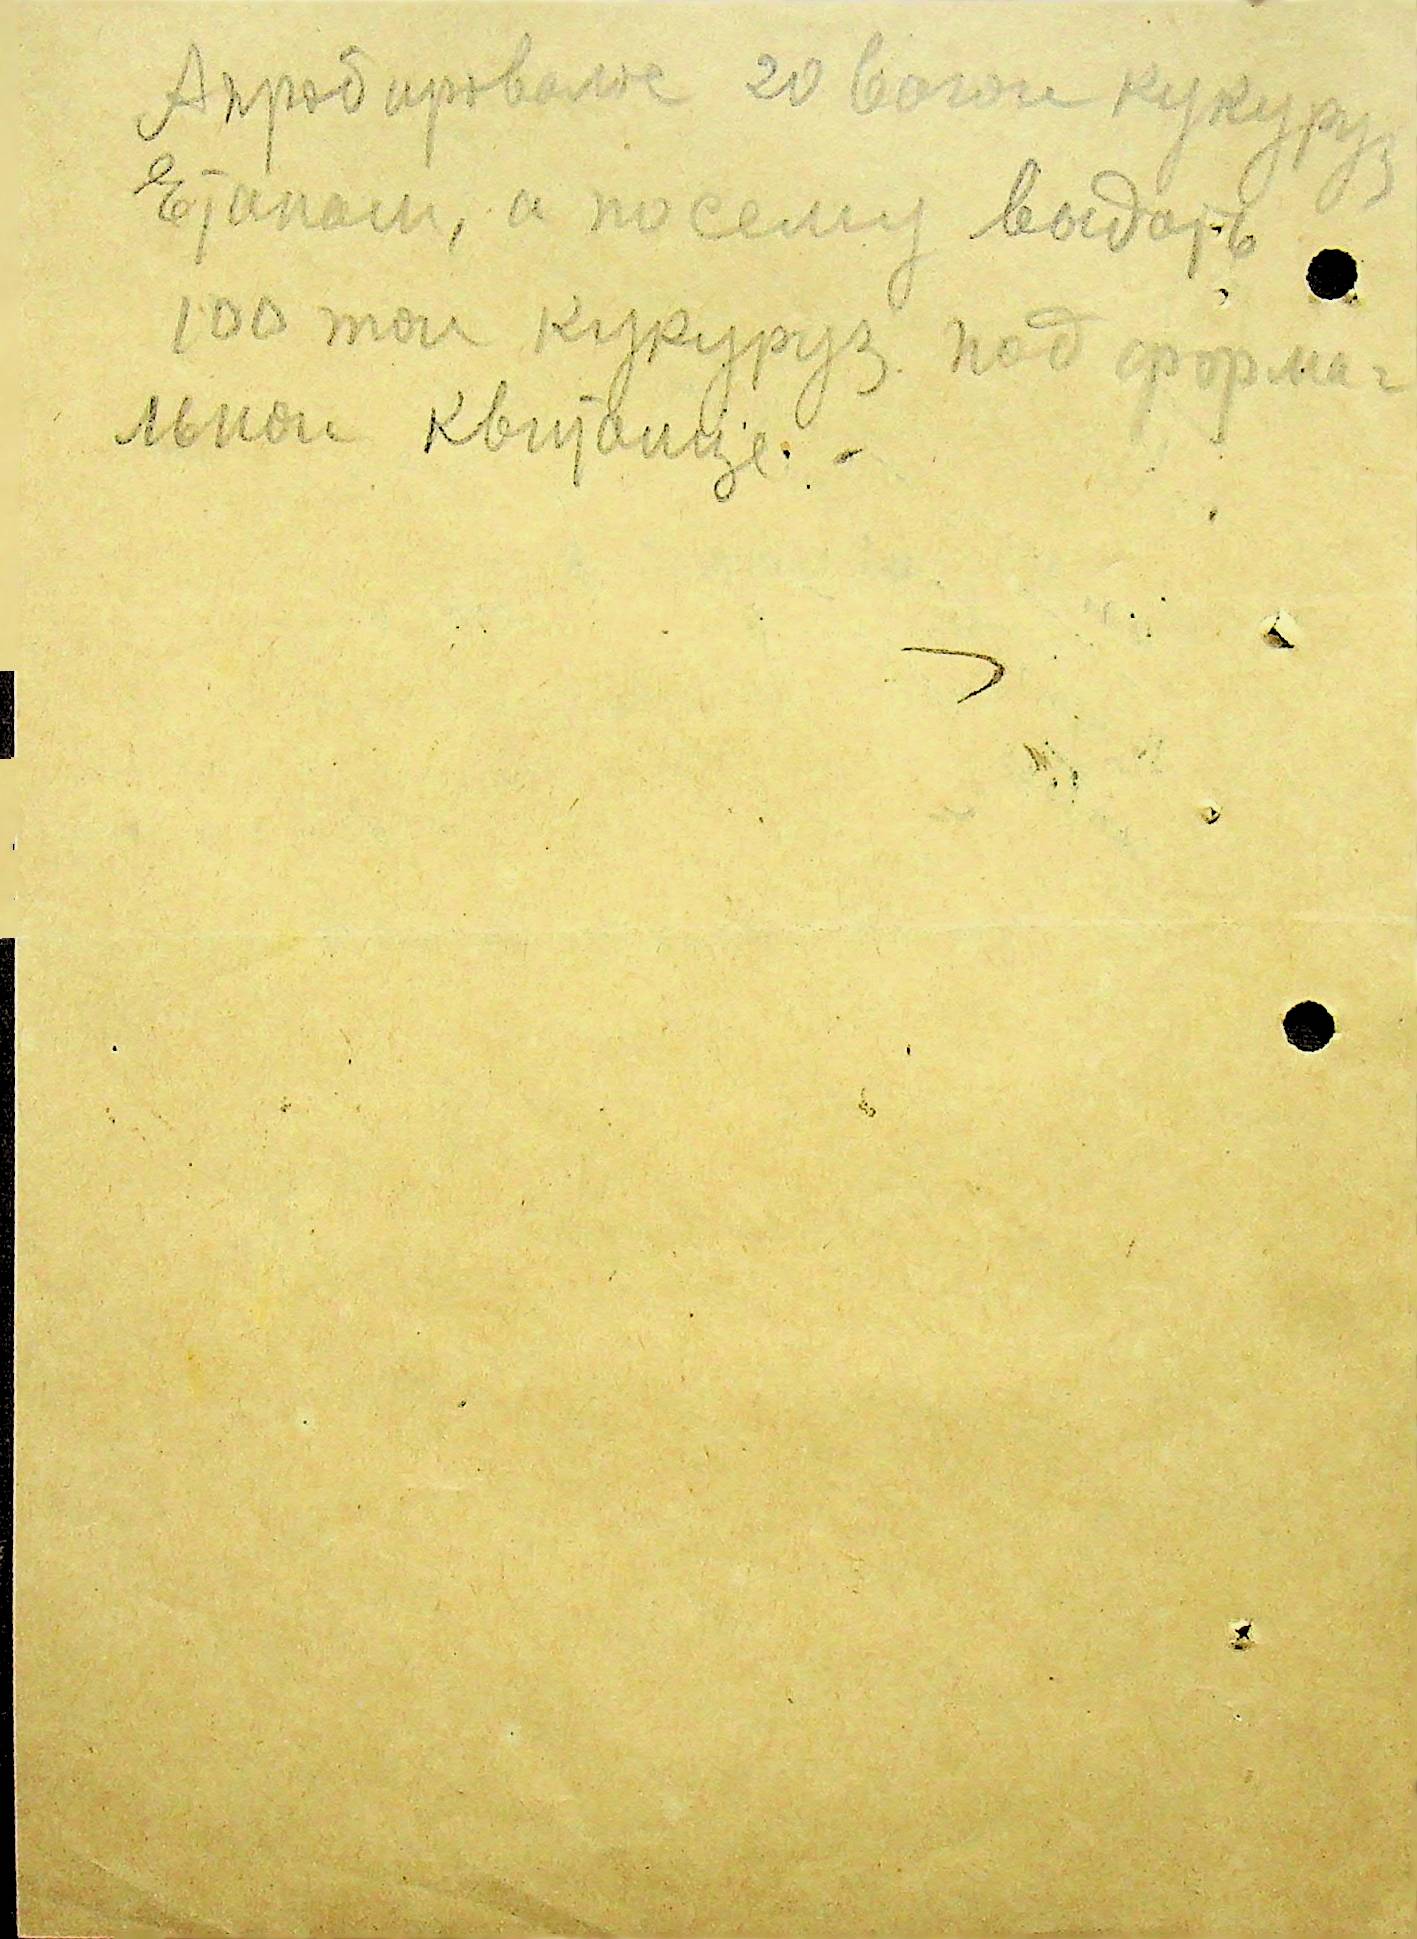 Апробировалое 20 вагон кукуруз
Етапам, а посему выдать
100 тон кукуруз. под форма-
льной квитанце. -